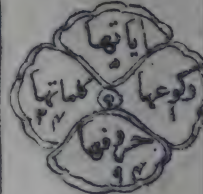 اياتها
٥
ركوعها
١
كلماتها
حروفها
٩٤